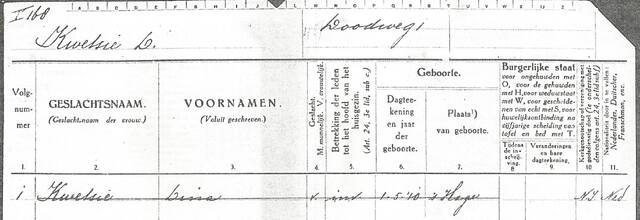 I 168
A B C D E F G H I J K L M N O P Q R S T U V W Y Z
Kwetsie L.
Loodweg 1
Volg-
num-
mer
GESLACHTSNAAM.
(Geslachtsnaam der vrouw.)
VOORNAMEN.
(Voluit geschreven.)
Geslacht.
M. mannelijk. V. vrouwelijk.
Betrekking der leden
tot het hoofd van het
huisgezin.
(Art. 24, 3e lid, sub c.)
Geboorte.
Dagtee-
kening
en jaar
der
geboorte.
Plaats¹)
van
geboorte.
Burgerlijke staat
voor ongehuwden met
O, voor de gehuwden
met H, voor weduwstaat
met W, voor geschiede-
nen van echt met S, voor
huwelijksontbinding na
vijfjarige scheiding van
tafel en bed met T.
Tijdens
de in-
schrij-
ving.
Veranderingen
en hare
dagteekening.
Nederlander, Duitscher,
Franschman, enz.
1. 2. 3. 4. 5. 6. 7. 8 9 10 11.
1 Kwetsie Lina v. ind 1-5-'10 's Hage N.I Ned